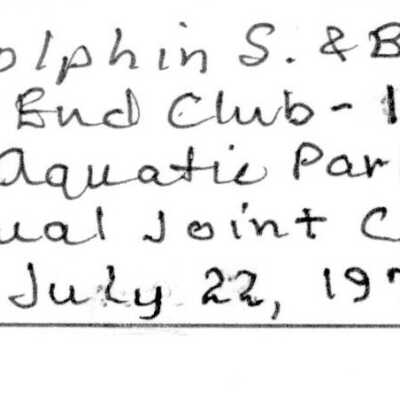 olphin S. & B
End Club - 1
Aquatic Par
ual Joint C
July 22, 197